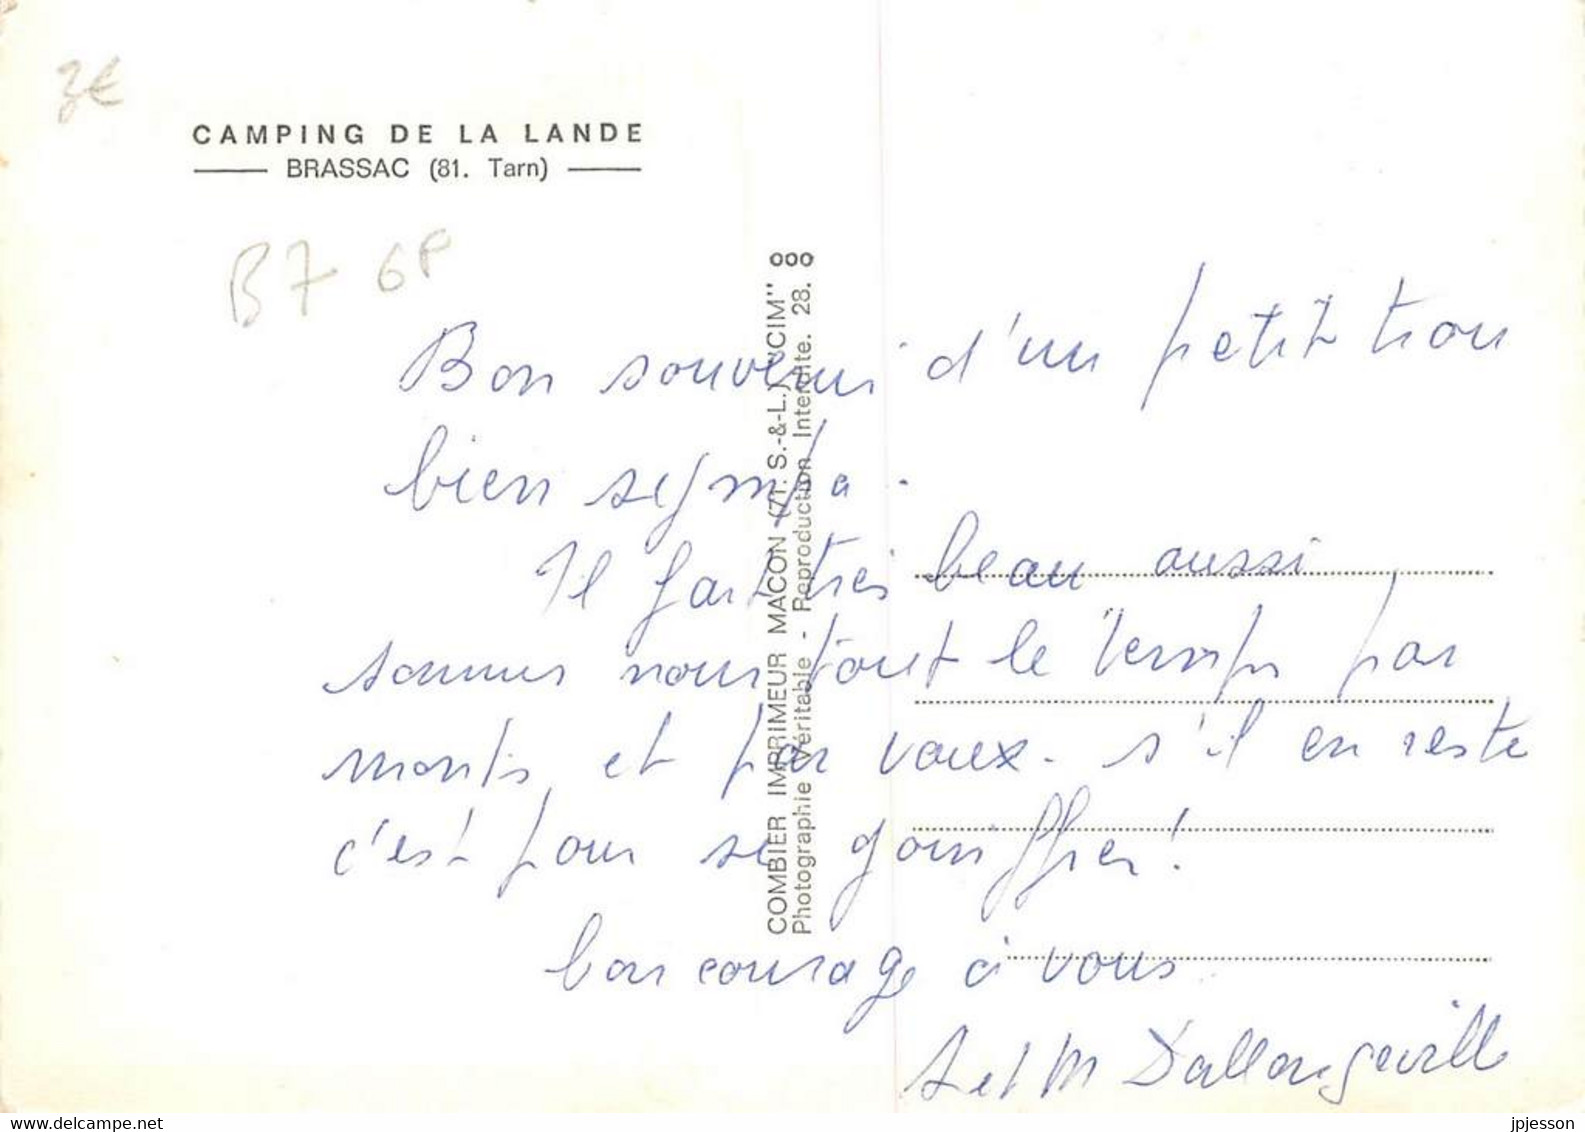 3€
CAMPING DE LA LANDE
BRASSAC (81. Tarn)
B7 6P
Bon souvenir d'un petit trou
bien sympa.
Il fait très beau aussi
sommes nous tout le temps par
monts et par vaux. s'il en reste
c'est pour se goinffrer!
bon courage à vous
S et M Dallongeville
COMBIER IMPRIMEUR MACON (71. S.-&-L.) "CIM"
Photographie Véritable - Reproduction Interdite. 28.
ooo
Delcampe.net
jpjesson